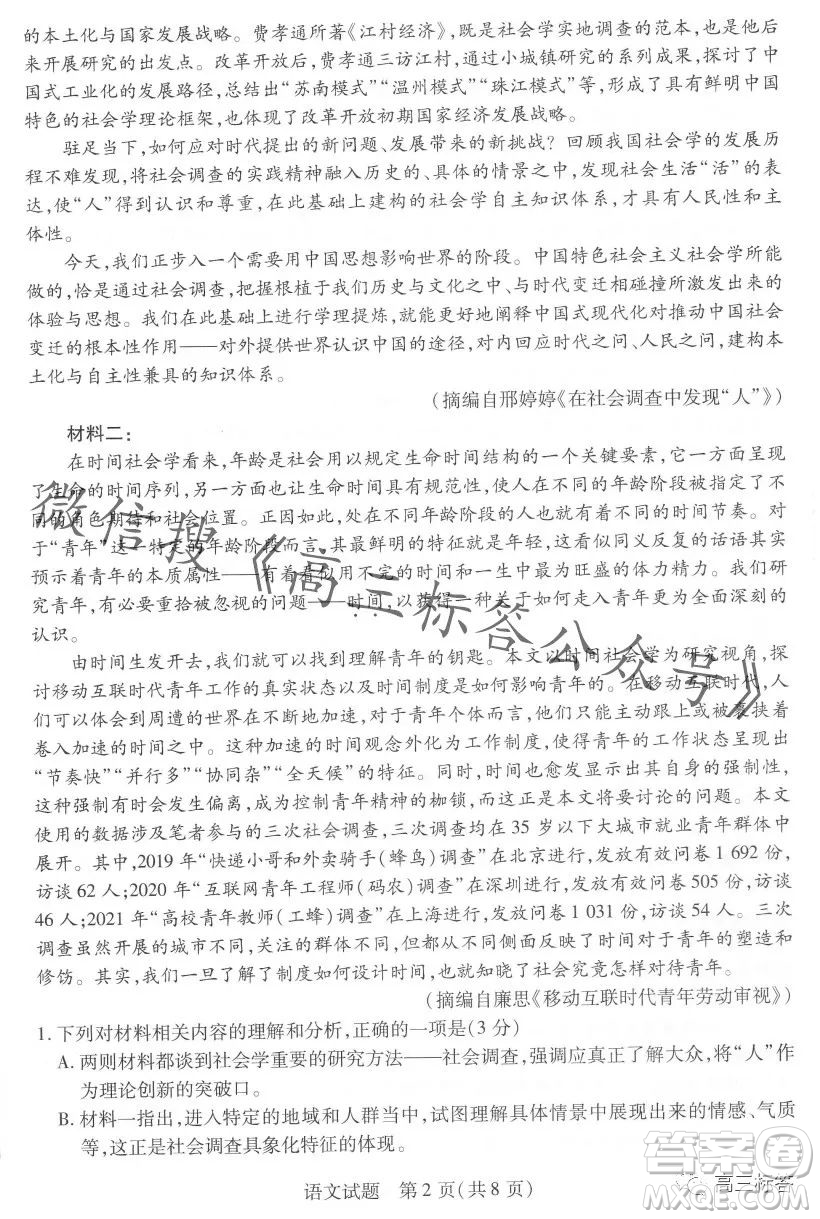 的本土化与国家发展战略。费孝通所著《江村经济》，既是社会学实地调查的范本，也是他后
来开展研究的出发点。改革开放后，费孝通三访江村，通过小城镇研究的系列成果，探讨了中
国式工业化的发展路径，总结出“苏南模式”“温州模式”“珠江模式”等，形成了具有鲜明中国
特色的社会学理论框架，也体现了改革开放初期国家经济发展战略。
驻足当下，如何应对时代提出的新问题、发展带来的新挑战？回顾我国社会学的发展历
程不难发现，将社会调查的实践精神融入历史的、具体的情景之中，发现社会生活“活”的表
达，使“人”得到认识和尊重，在此基础上建构的社会学自主知识体系，才具有人民性和主
体性。
今天，我们正步入一个需要用中国思想影响世界的阶段。中国特色社会主义社会学所能
做的，恰是通过社会调查，把握根植于我们历史与文化之中、与时代相碰撞所激发出来的
体验与思想。我们在此基础上进行学理提炼，就能更好地阐释中国式现代化对推动中国社会
变迁的根本性作用——对外提供世界认识中国的途径，对内回应时代之问、人民之问，建构本
土化与自主性兼具的知识体系。
（摘编自邢婷婷《在社会调查中发现“人”》）
材料二：
在时间社会学看来，年龄是社会用以规定生命时间结构的一个关键要素，它一方面呈现
了生命的时间序列，另一方面也让生命时间具有规范性，使人在不同的年龄阶段被赋予了不
同的角色期待和社会位置。正因如此，处在不同年龄阶段的人也就有着不同的时间节奏。对
于“青年”这一特定的年龄阶段而言，其最鲜明的特征就是年轻，这看似同义反复的话语其实
预示着青年的本质属性——有着看似用不完的时间和一生中最为旺盛的体力精力。我们研
究青年，有必要重拾被忽视的问题——时间，以获得一种关于如何走入青年更为全面深刻的
认识。
由时间生发开去，我们就可以找到理解青年的钥匙。本文以时间社会学为研究视角，探
讨移动互联时代青年工作的真实状态以及时间制度是如何影响青年的。在移动互联时代，人
们可以体会到周遭的世界在不断地加速，对于青年个体而言，他们只能主动跟上或被裹挟着
卷入加速的时间之中。这种加速的时间观念外化为工作制度，使得青年的工作状态呈现出
“节奏快”“并行多”“协同杂”“全天候”的特征。同时，时间也愈发显出其自身的强制性，
这种强制有时会发生偏离，成为控制青年精神的枷锁，而这正是本文将要讨论的问题。本文
使用的数据涉及笔者参与的三次社会调查，三次调查均在 35 岁以下大城市就业青年群体中
展开。其中，2019 年“快递小哥和外卖骑手（蜂鸟）调查”在北京进行，发放有效问卷 1 692 份，
访谈 62 人；2020 年“互联网青年工程师（码农）调查”在深圳进行，发放有效问卷 505 份，访谈
46 人；2021 年“高校青年教师（工蜂）调查”在上海进行，发放有效问卷 1 031 份，访谈 54 人。三次
调查虽然开展的城市不同，关注的群体不同，但都从不同侧面反映了时间对于青年的塑造和
修饬。其实，我们一旦了解了制度如何设计时间，也就知晓了社会究竟怎样对待青年。
（摘编自廉思《移动互联时代青年劳动审视》）
1. 下列对材料相关内容的理解和分析，正确的一项是（3 分）
A. 两则材料都谈到社会学重要的研究方法——社会调查，强调应真正了解大众，将“人”作
为理论创新的突破口。
B. 材料一指出，进入特定的地域和人群当中，试图理解具体情景中展现出来的情感、气质
等，这正是社会调查具象化特征的体现。
语文试题 第 2 页（共 8 页）
微信搜《高三标答公众号》
高三标答
答案圈
MXQE.COM